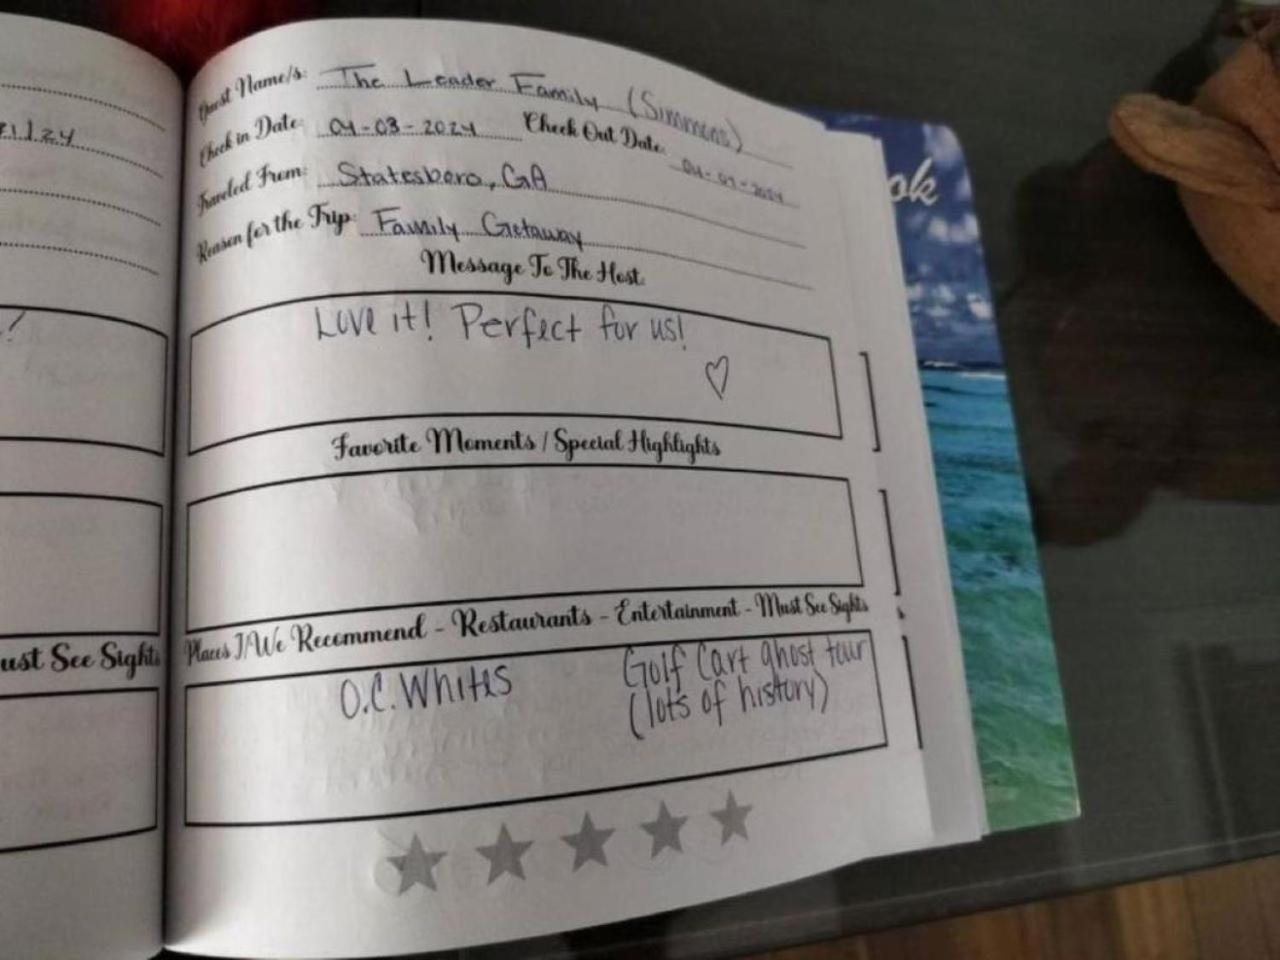 71/24
!
ust See Sights
Guest Name/s: The Leader Family (Simmons)
Check in Date: 04-03-2024 Check Out Date:
Traveled From: Statesboro, GA
Reason for the Trip: Family Getaway
Message To The Host
Love it! Perfect for us!
♡
Favorite Moments / Special Highlights
Places I/We Recommend - Restaurants - Entertainment - Must See Sights
O.C. Whites Golf Cart ghost tour
(lots of history)
ok